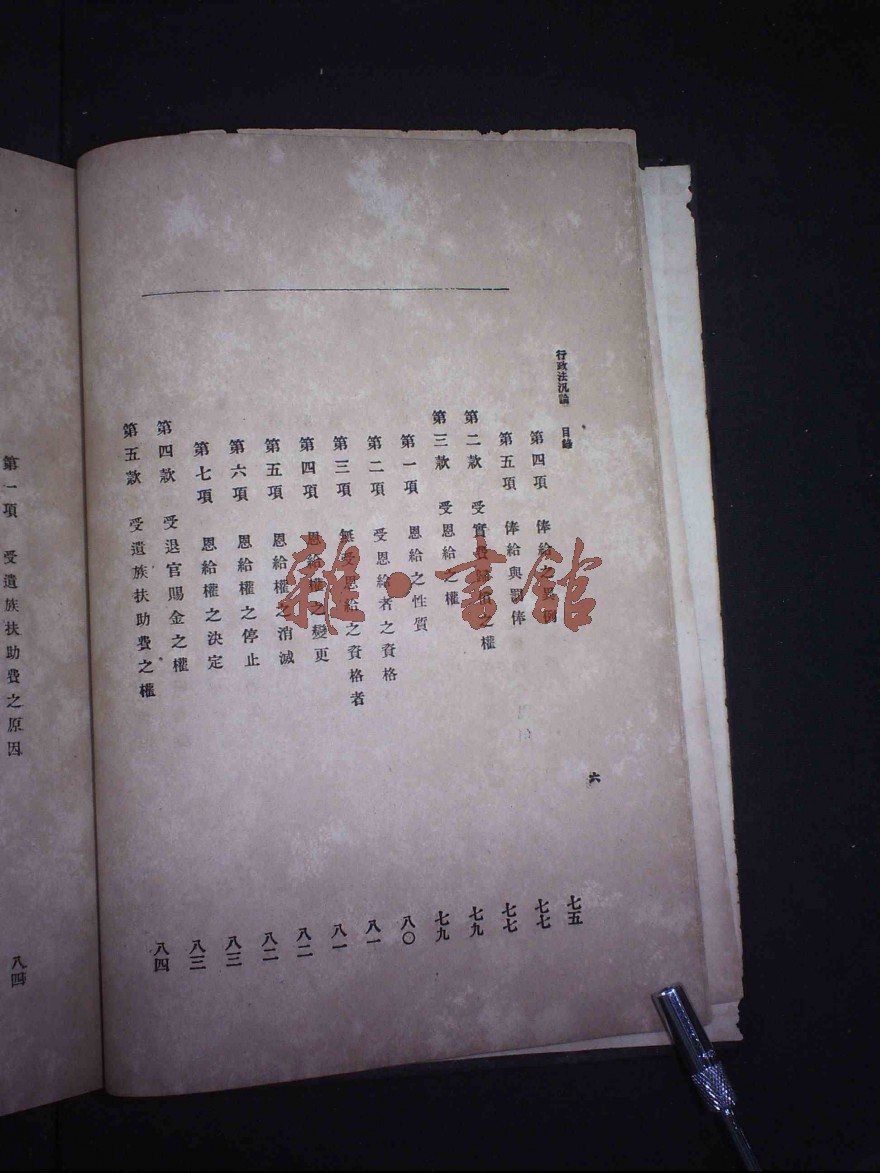 行政法汎論 目錄 六
第四項 俸給之例 七五
第五項 俸給與罰俸 七七
第二款 受實費之權 七七
第三款 受恩給之權 七九
第一項 恩給之性質 七九
第二項 受恩給者之資格 八〇
第三項 無受恩給之資格者 八一
第四項 恩給權之變更 八一
第五項 恩給權之消滅 八二
第六項 恩給權之停止 八二
第七項 恩給權之決定 八三
第四款 受退官賜金之權 八三
第五款 受遺族扶助費之權 八四
第一項 受遺族扶助費之原因 八四
雜·書館